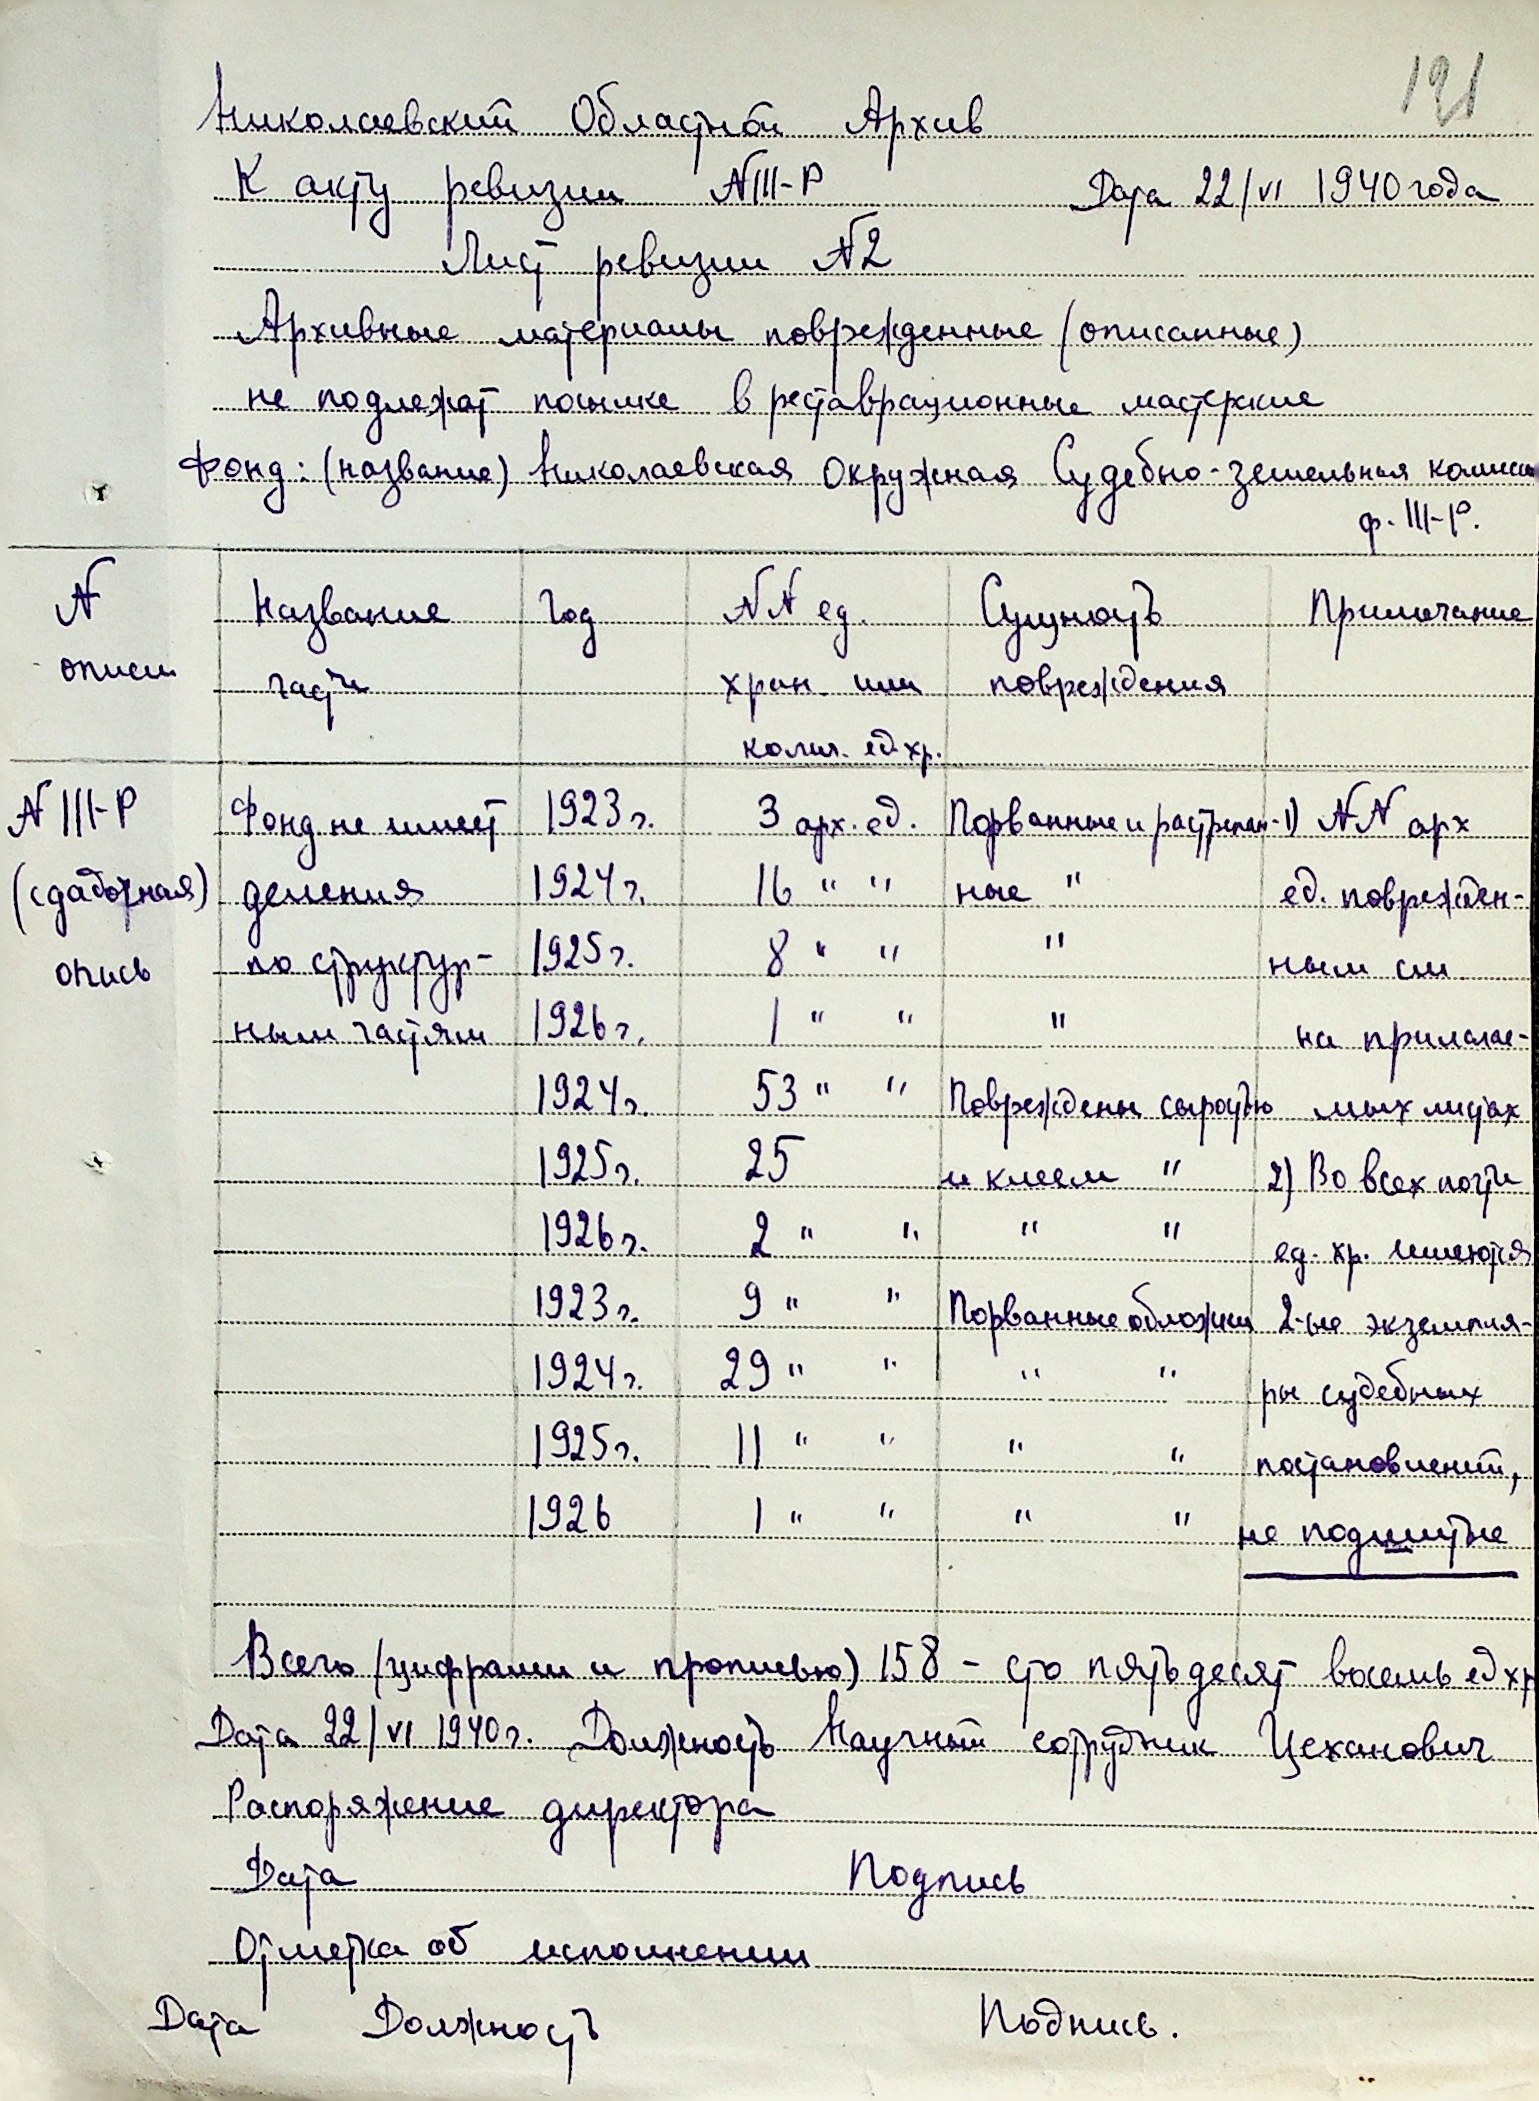 121
Николаевский Областной Архив
К акту ревизии N III-Р Дата 22/VI 1940 года
Лист ревизии N2
Архивные материалы поврежденные (описанные)
не подлежат посылке в реставрационные мастерские
Фонд: (название) Николаевская Окружная Судебно-земельная комисси
ф. III-Р.
N Название Год NN ед. Сущность Примечание
описи части хран. или повреждения
колич. ед. хр.
N III-Р Фонд не имеет 1923 г. 3 арх. ед. Порванные и растрепан- 1) NN арх
(сдаточная) деления 1924 г. 16 " " ные " ед. поврежден-
опись по структур- 1925 г. 8 " " " ным см.
ным частям 1926 г. 1 " " " на прилагае-
1924 г. 53 " " Повреждены сыростью мых листах
1925 г. 25 и клеем " 2) Во всех почти
1926 г. 2 " " " " ед. хр. имеются
1923 г. 9 " " Порванные обложки 2-ые экземпля-
1924 г. 29 " " " " ры судебных
1925 г. 11 " " " " постановлений,
1926 1 " " " " не подшитые
Всего (цифрами и прописью) 158 - сто пятьдесят восемь ед хр
Дата 22/VI 1940 г. Должность Научный сотрудник Цеханович
Распоряжение директора
Дата Подпись
Отметка об исполнении
Дата Должность Подпись.